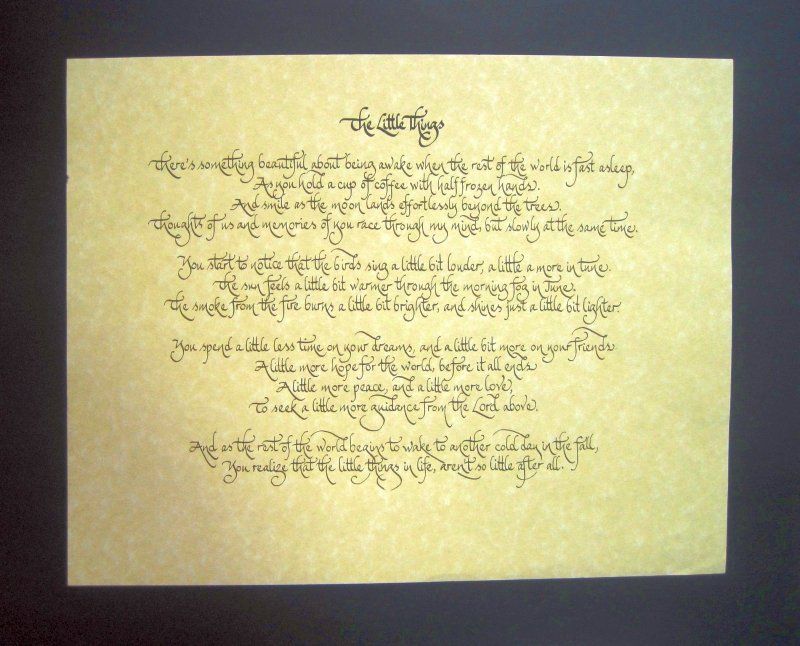 The Little Things
There's something beautiful about being awake when the rest of the world is fast asleep,
As you hold a cup of coffee with half frozen hands.
And smile as the moon lands effortlessly beyond the trees.
Thoughts of us and memories of you race through my mind, but slowly at the same time.
You start to notice that the birds sing a little bit louder, a little a more in tune.
The sun feels a little bit warmer through the morning fog in June.
The smoke from the fire burns a little bit brighter, and shines just a little bit lighter.
You spend a little less time on your dreams, and a little bit more on your friends.
A little more hope for the world, before it all ends
A little more peace, and a little more love,
To seek a little more guidance from the Lord above.
And as the rest of the world begins to wake to another cold day in the fall,
You realize that the little things in life, aren't so little after all.